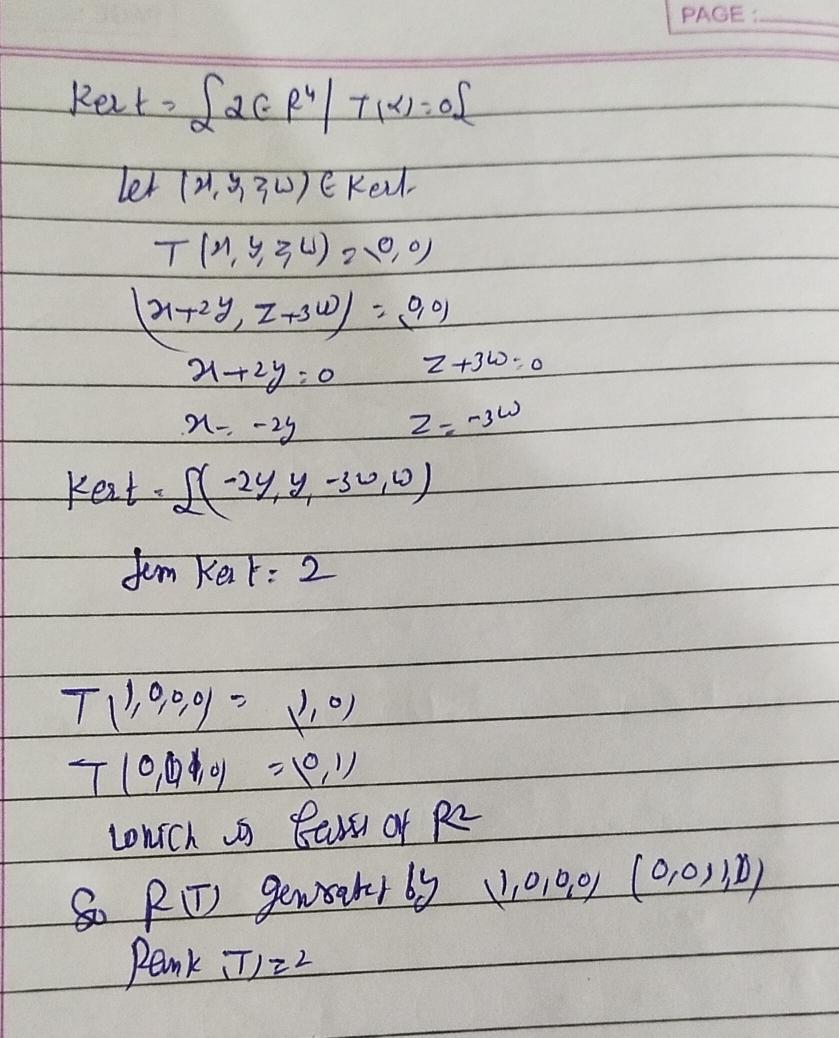 PAGE :
Ker t = {α ∈ R⁴ | T(α) = 0}
Let (x, y, z, w) ∈ Ker t
T(x, y, z, w) = (0, 0)
(x+2y, z+3w) = (0, 0)
x+2y = 0 z+3w = 0
x = -2y z = -3w
Ker t = {(-2y, y, -3w, w)
dim Ker t = 2
T(1,0,0,0) = (1,0)
T(0,0,1,0) = (0,1)
which is basis of R2
So R(T) generated by (1,0,0,0) (0,0,1,0)
Rank (T) = 2